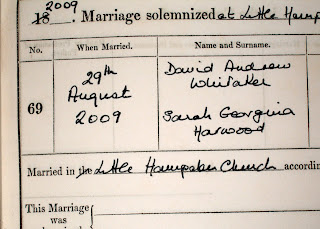 2009
18 . Marriage solemnized at Little Hamp
No. When Married. Name and Surname.
69
29th
August
2009
David Andrew
Whitaker
Sarah Georgina
Harwood
Married in the Little Hampden Church accordin
This Marriage
was